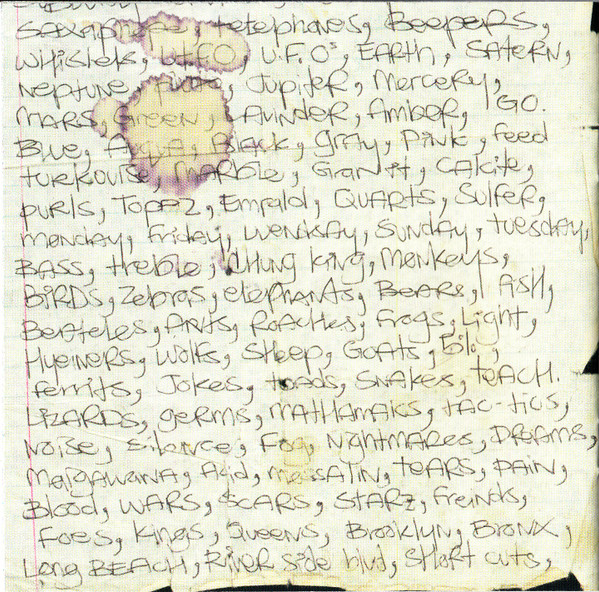 saxaphone, telephones, Beepers,
whistels, U.F.O, U.F.O's, EARth, SATERN,
Neptune, Jupiter, Mercery,
MARS, Green, LAvinder, Amber, GO.
Blue, Auqua, Black, gray, Pink, feed
turkouise, marble, Granit, CAlcite,
purls, Topaz, Emrald, QUARTS, Sulfer,
monday, Friday, wendsay, Sunday, tuesday,
BASS, treble, Chung King, Monkeys,
BiRDS, Zebras, elephants, BeARs, FiSH,
Beateles, ANts, Roaches, Frogs, Light,
Hyeiners, Wolfs, Sheep, GoAts,
ferrits, Jokes, toads, SNAkes, teACH.
LiZARDS, germs, MATHAMAKS, tAC-tics,
Noise, Silence, Fog, NightmARes, DReams,
Marawana, Acid, messalin, teARS, pAiN,
Blood, WARS, SCARS, STARZ, freinds,
Foes, Kings, Queens, Brooklyn, Bronx,
Long BEACH, River side blvd, Short cuts,